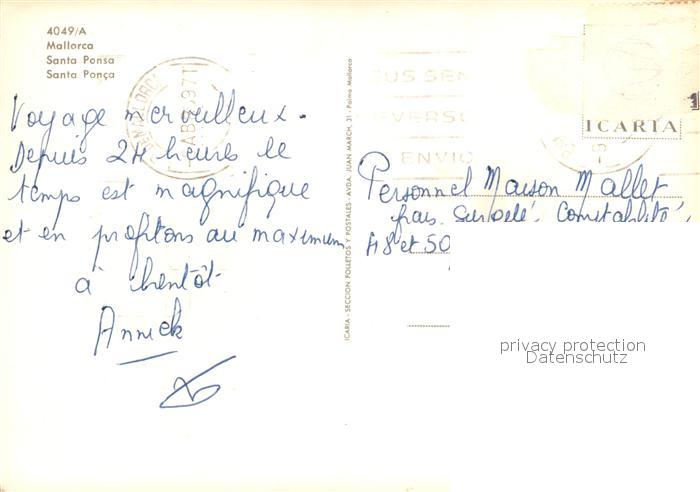 4049/A
Mallorca
Santa Ponsa
Santa Ponça
Voyage merveilleux.
Depuis 24 heures le
temps est magnifique
et en profitons au maximum
à bientôt
Annick
ICARIA - SECCION FOLLETOS Y POSTALES - AVDA. JUAN MARCH, 31 - Palma Mallorca
DE MALLORCA
1971
SUS SEN
ENVIO
ICARIA
Personnel Maison Mallet
frais Comptabilité
48 et 50
privacy protection
Datenschutz